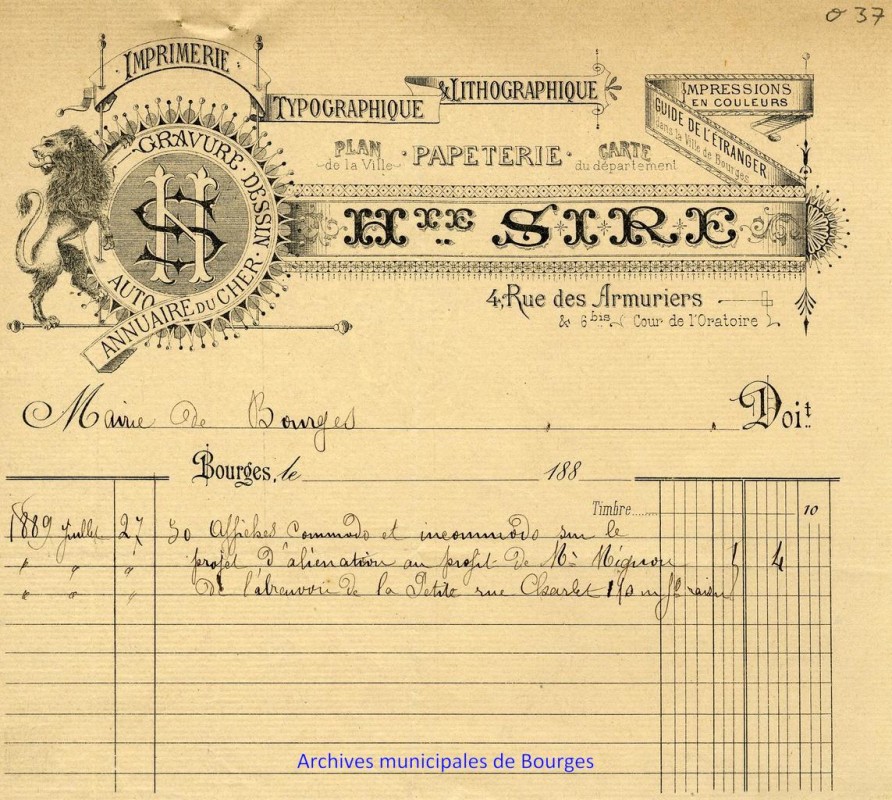 0 37
IMPRIMERIE
TYPOGRAPHIQUE
& LITHOGRAPHIQUE
IMPRESSIONS
EN COULEURS
GUIDE DE L'ÉTRANGER
dans la Ville de Bourges
PLAN
de la Ville
· PAPETERIE ·
CARTE
du département
GRAVURE · DESSIN ·
AUTO
ANNUAIRE DU CHER
HS
Hte SIRE
4, Rue des Armuriers
& 6 bis Cour de l'Oratoire
Mairie de Bourges Doit
Bourges, le 188
Timbre...... 10
1889 Juillet 27 50 Affiches commodo et incommodo sur le
" " " projet d'aliénation au profit de Mr Mignon } 4
" " " de l'abreuvoir de la Petite rue Charlet
Archives municipales de Bourges